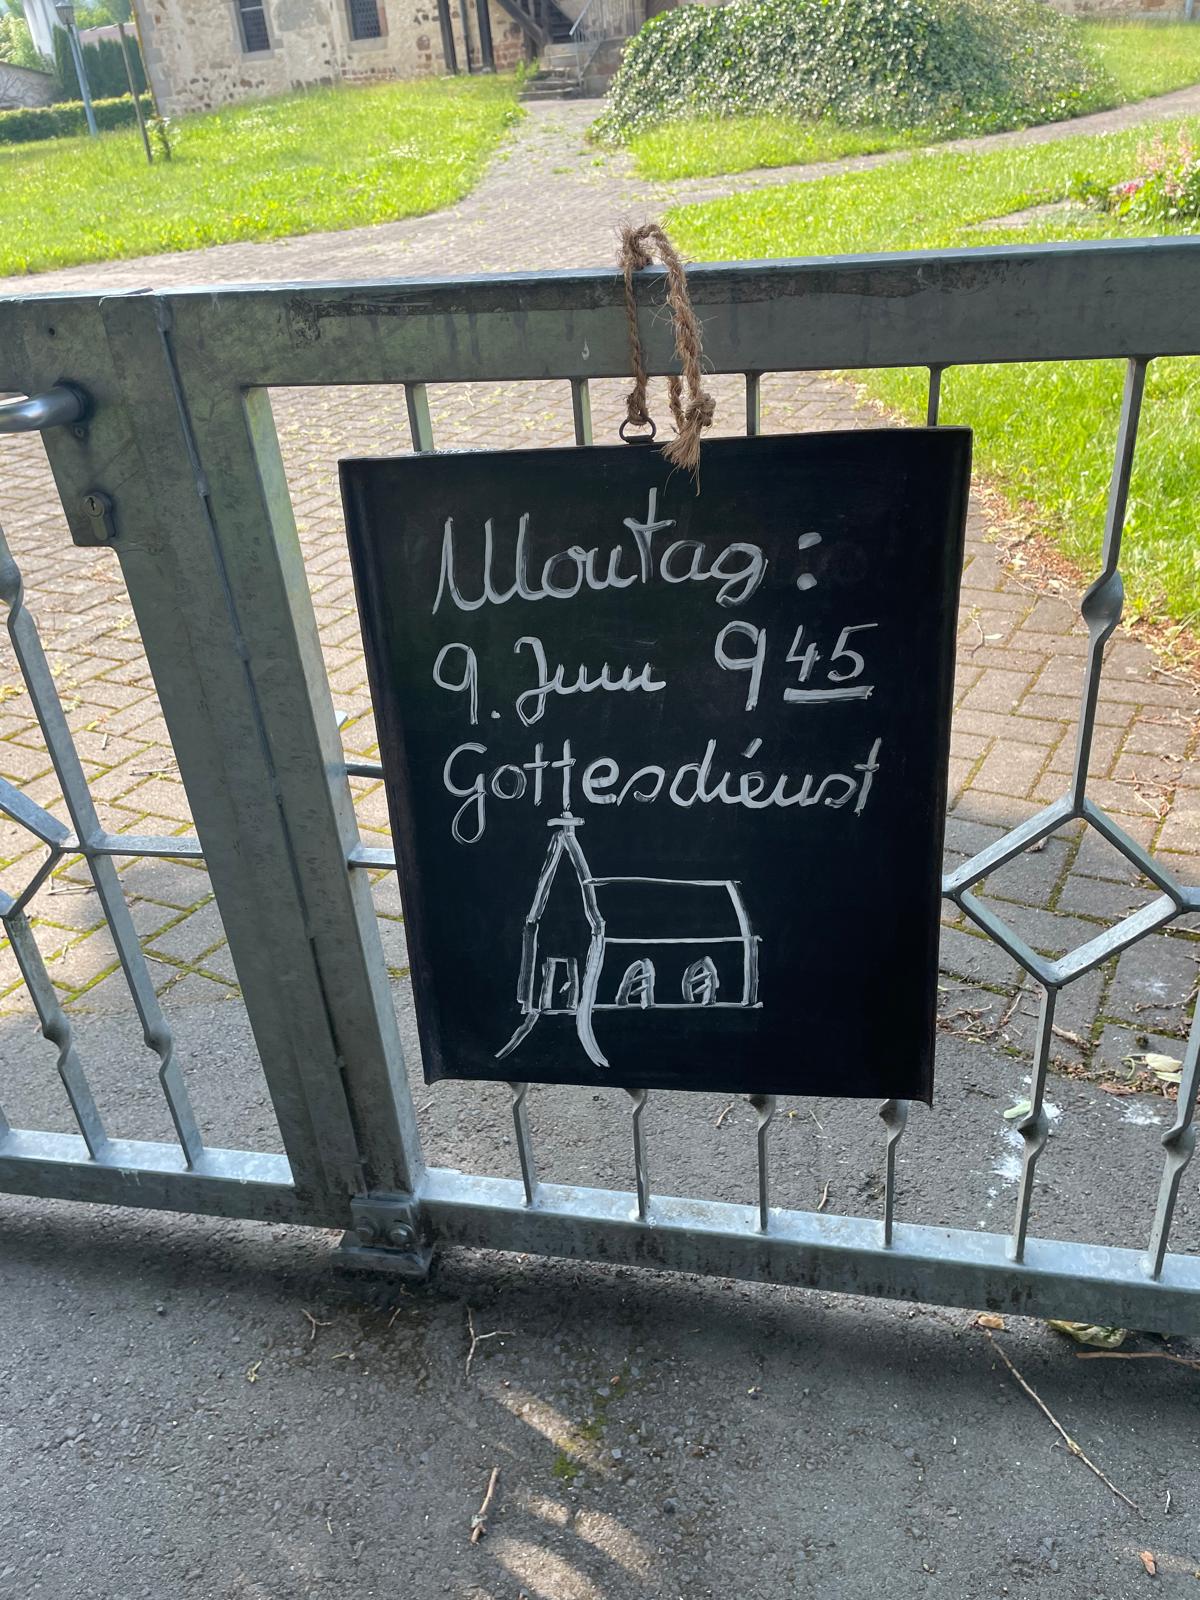 Montag:
9. Juni 9 45
Gottesdienst